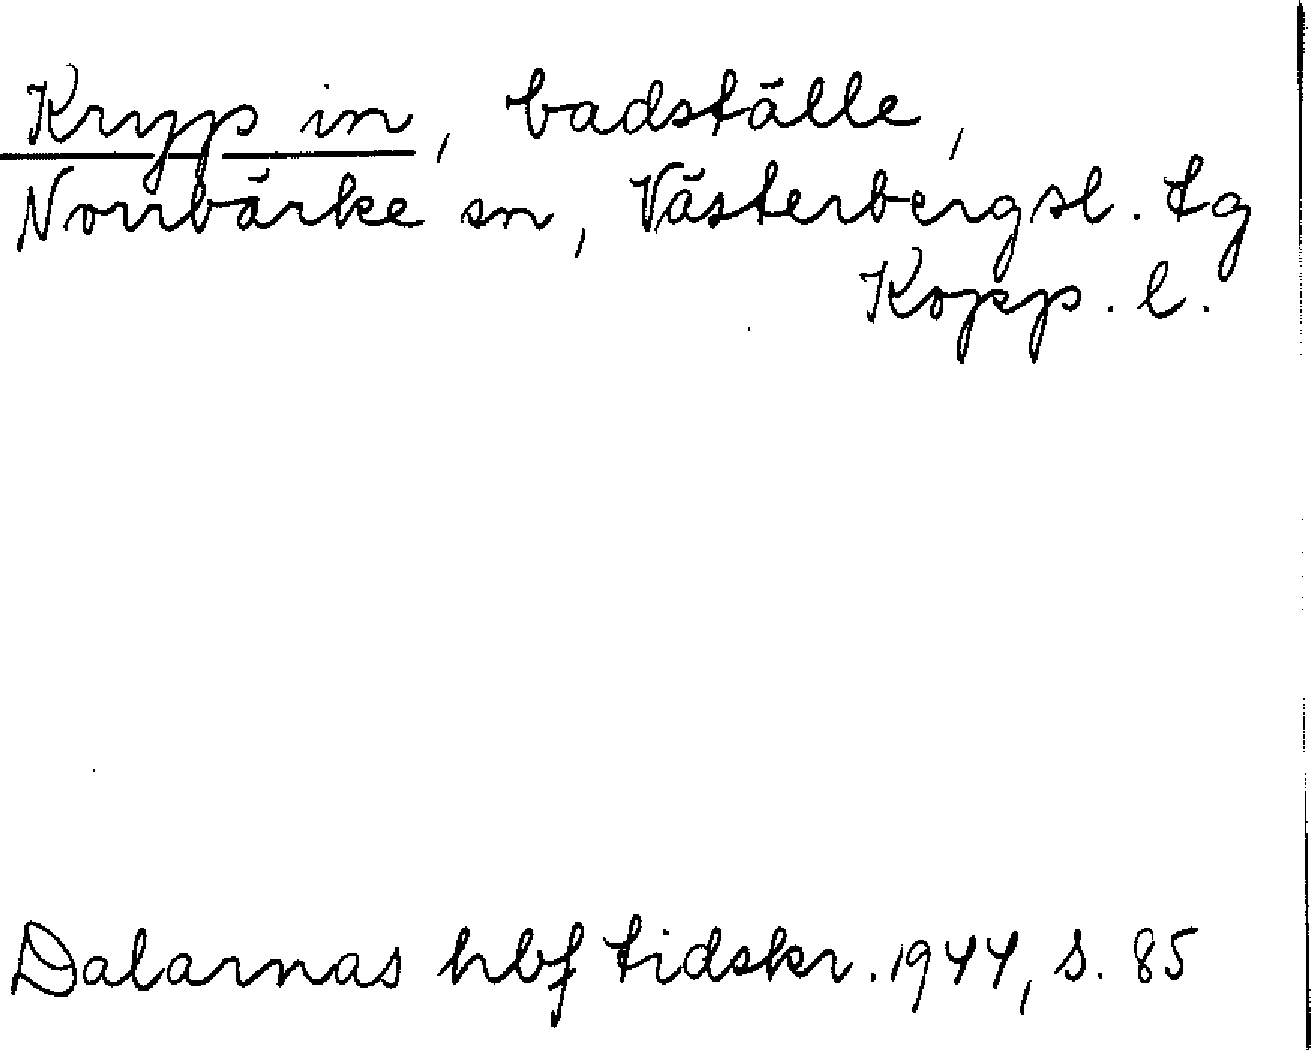 Kryp in, badställe,
Norrbärke sn, Västerbergsl. tg
Kopp. l.
Dalarnas hbf tidskr. 1944, s. 85